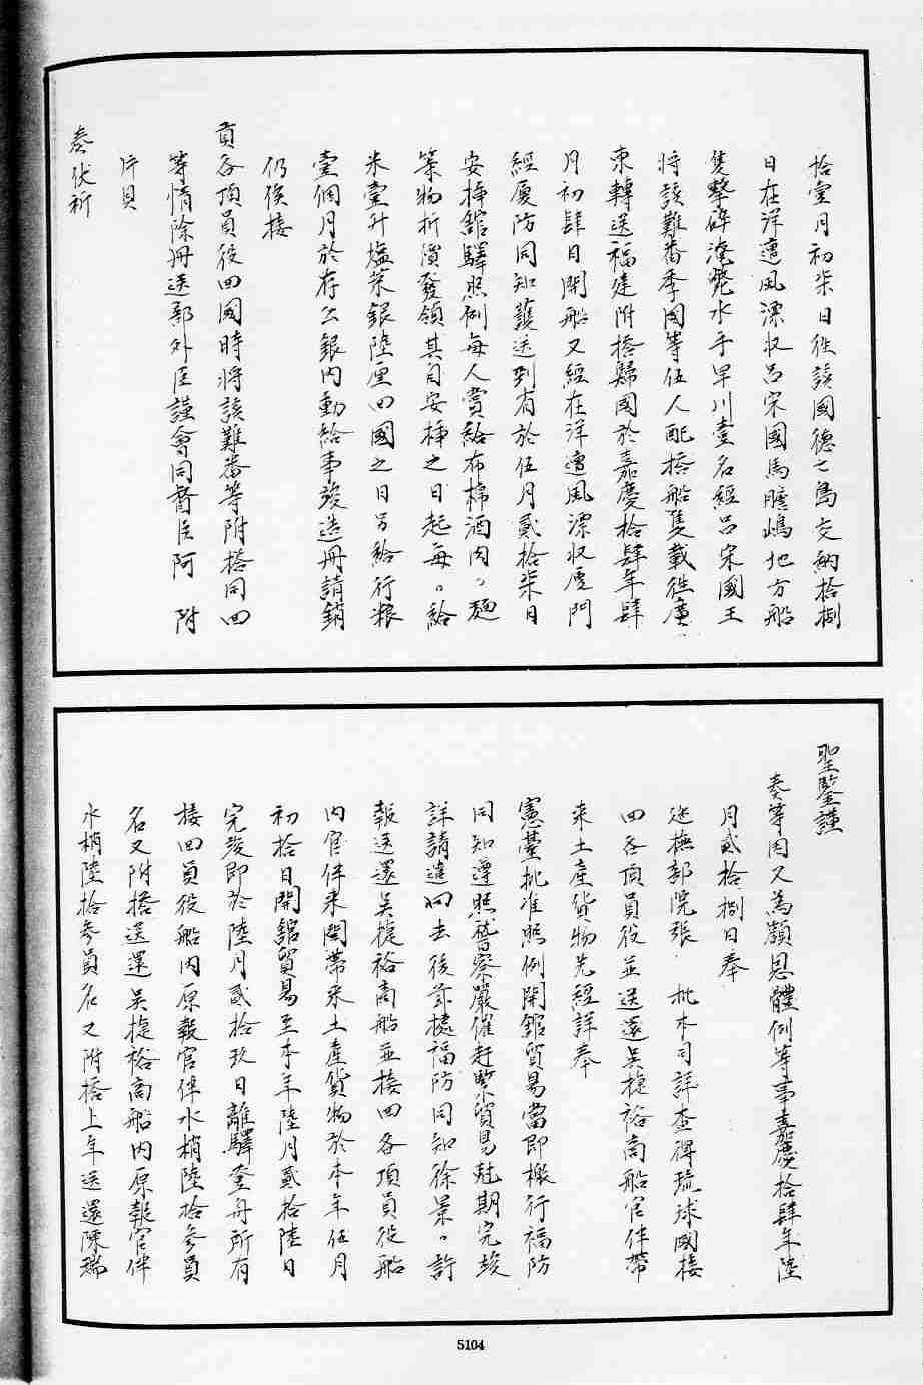 拾壹月初柒日往該國德之島交納拾捌
日在洋遭風漂收呂宋國馬膽嶋地方船
隻擊碎淹斃水手早川壹名經呂宋國王
將該難番季國等伍人配搭船隻載往廣
東轉送福建附搭歸國於嘉慶拾肆年肆
月初肆日開船又經在洋遭風漂收廈門
經廈防同知護送到省於伍月貳拾柒日
安揷館驛照例每人賞給布棉酒肉、麵
等物折價發領其自安揷之日起每、給
米壹升塩菜銀陸厘回國之日另給行粮
壹個月於存公銀內動給事竣造册請銷
仍俟接
貢各項員役回國時將該難番等附搭同回
等情除册送部外臣謹會同督臣阿 附
片具
奏伏祈
聖鑒謹
奏等因又為籲恩體例等事嘉慶拾肆年陸
月貳拾捌日奉
巡撫部院張 批本司詳查得琉球國接
回各項員役並送還吳捷裕商船官伴帶
來土產貨物先經詳奉
憲臺批准照例開舘貿易當即檄行福防
同知遵照督察嚴催赶緊貿易尅期完竣
詳請遣回去後茲據福防同知徐景、詳
報送還吳捷裕商船並接回各項員役船
內官伴来閩帶来土產貨物於本年伍月
初拾日開舘貿易至本年陸月貳拾陸日
完竣即於陸月貳拾玖日離驛登舟所有
接回員役船內原報官伴水梢陸拾參員
名又附搭送還吳捷裕商船內原報官伴
水梢陸拾參員名又附搭上年送還陳瑞
5104